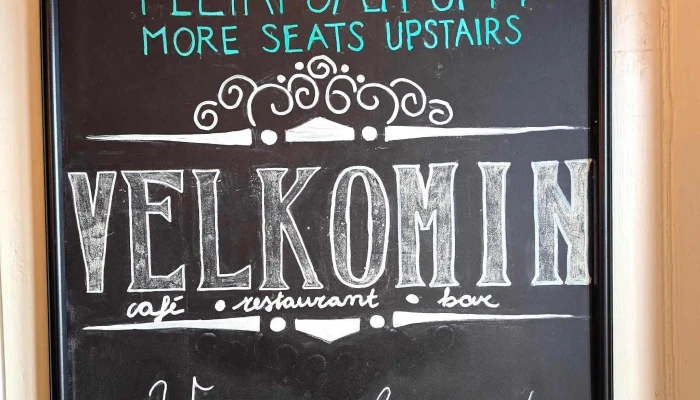 MORE SEATS UPSTAIRS
VELKOMIN
café • restaurant • bar